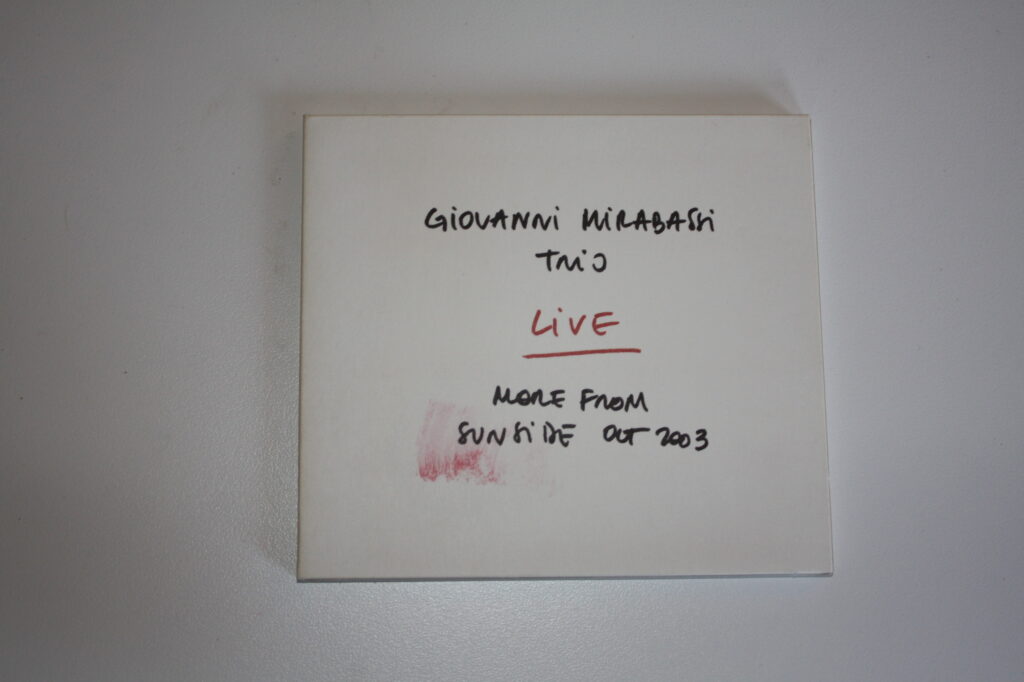 GIOVANNI MIRABASSI
TRIO
LIVE
MORE FROM
SUNSIDE OCT 2003